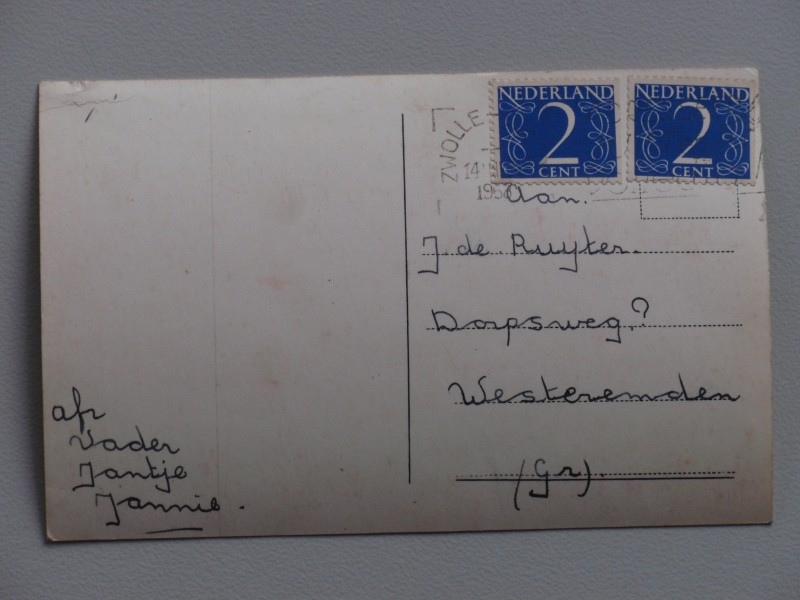 NEDERLAND NEDERLAND
2 2
CENT CENT
ZWOLLE
14
Aan.
J. de Ruyter.
Dorpsweg?
Westeremden
(Gr).
afz
Vader
Jantje
Jannie.